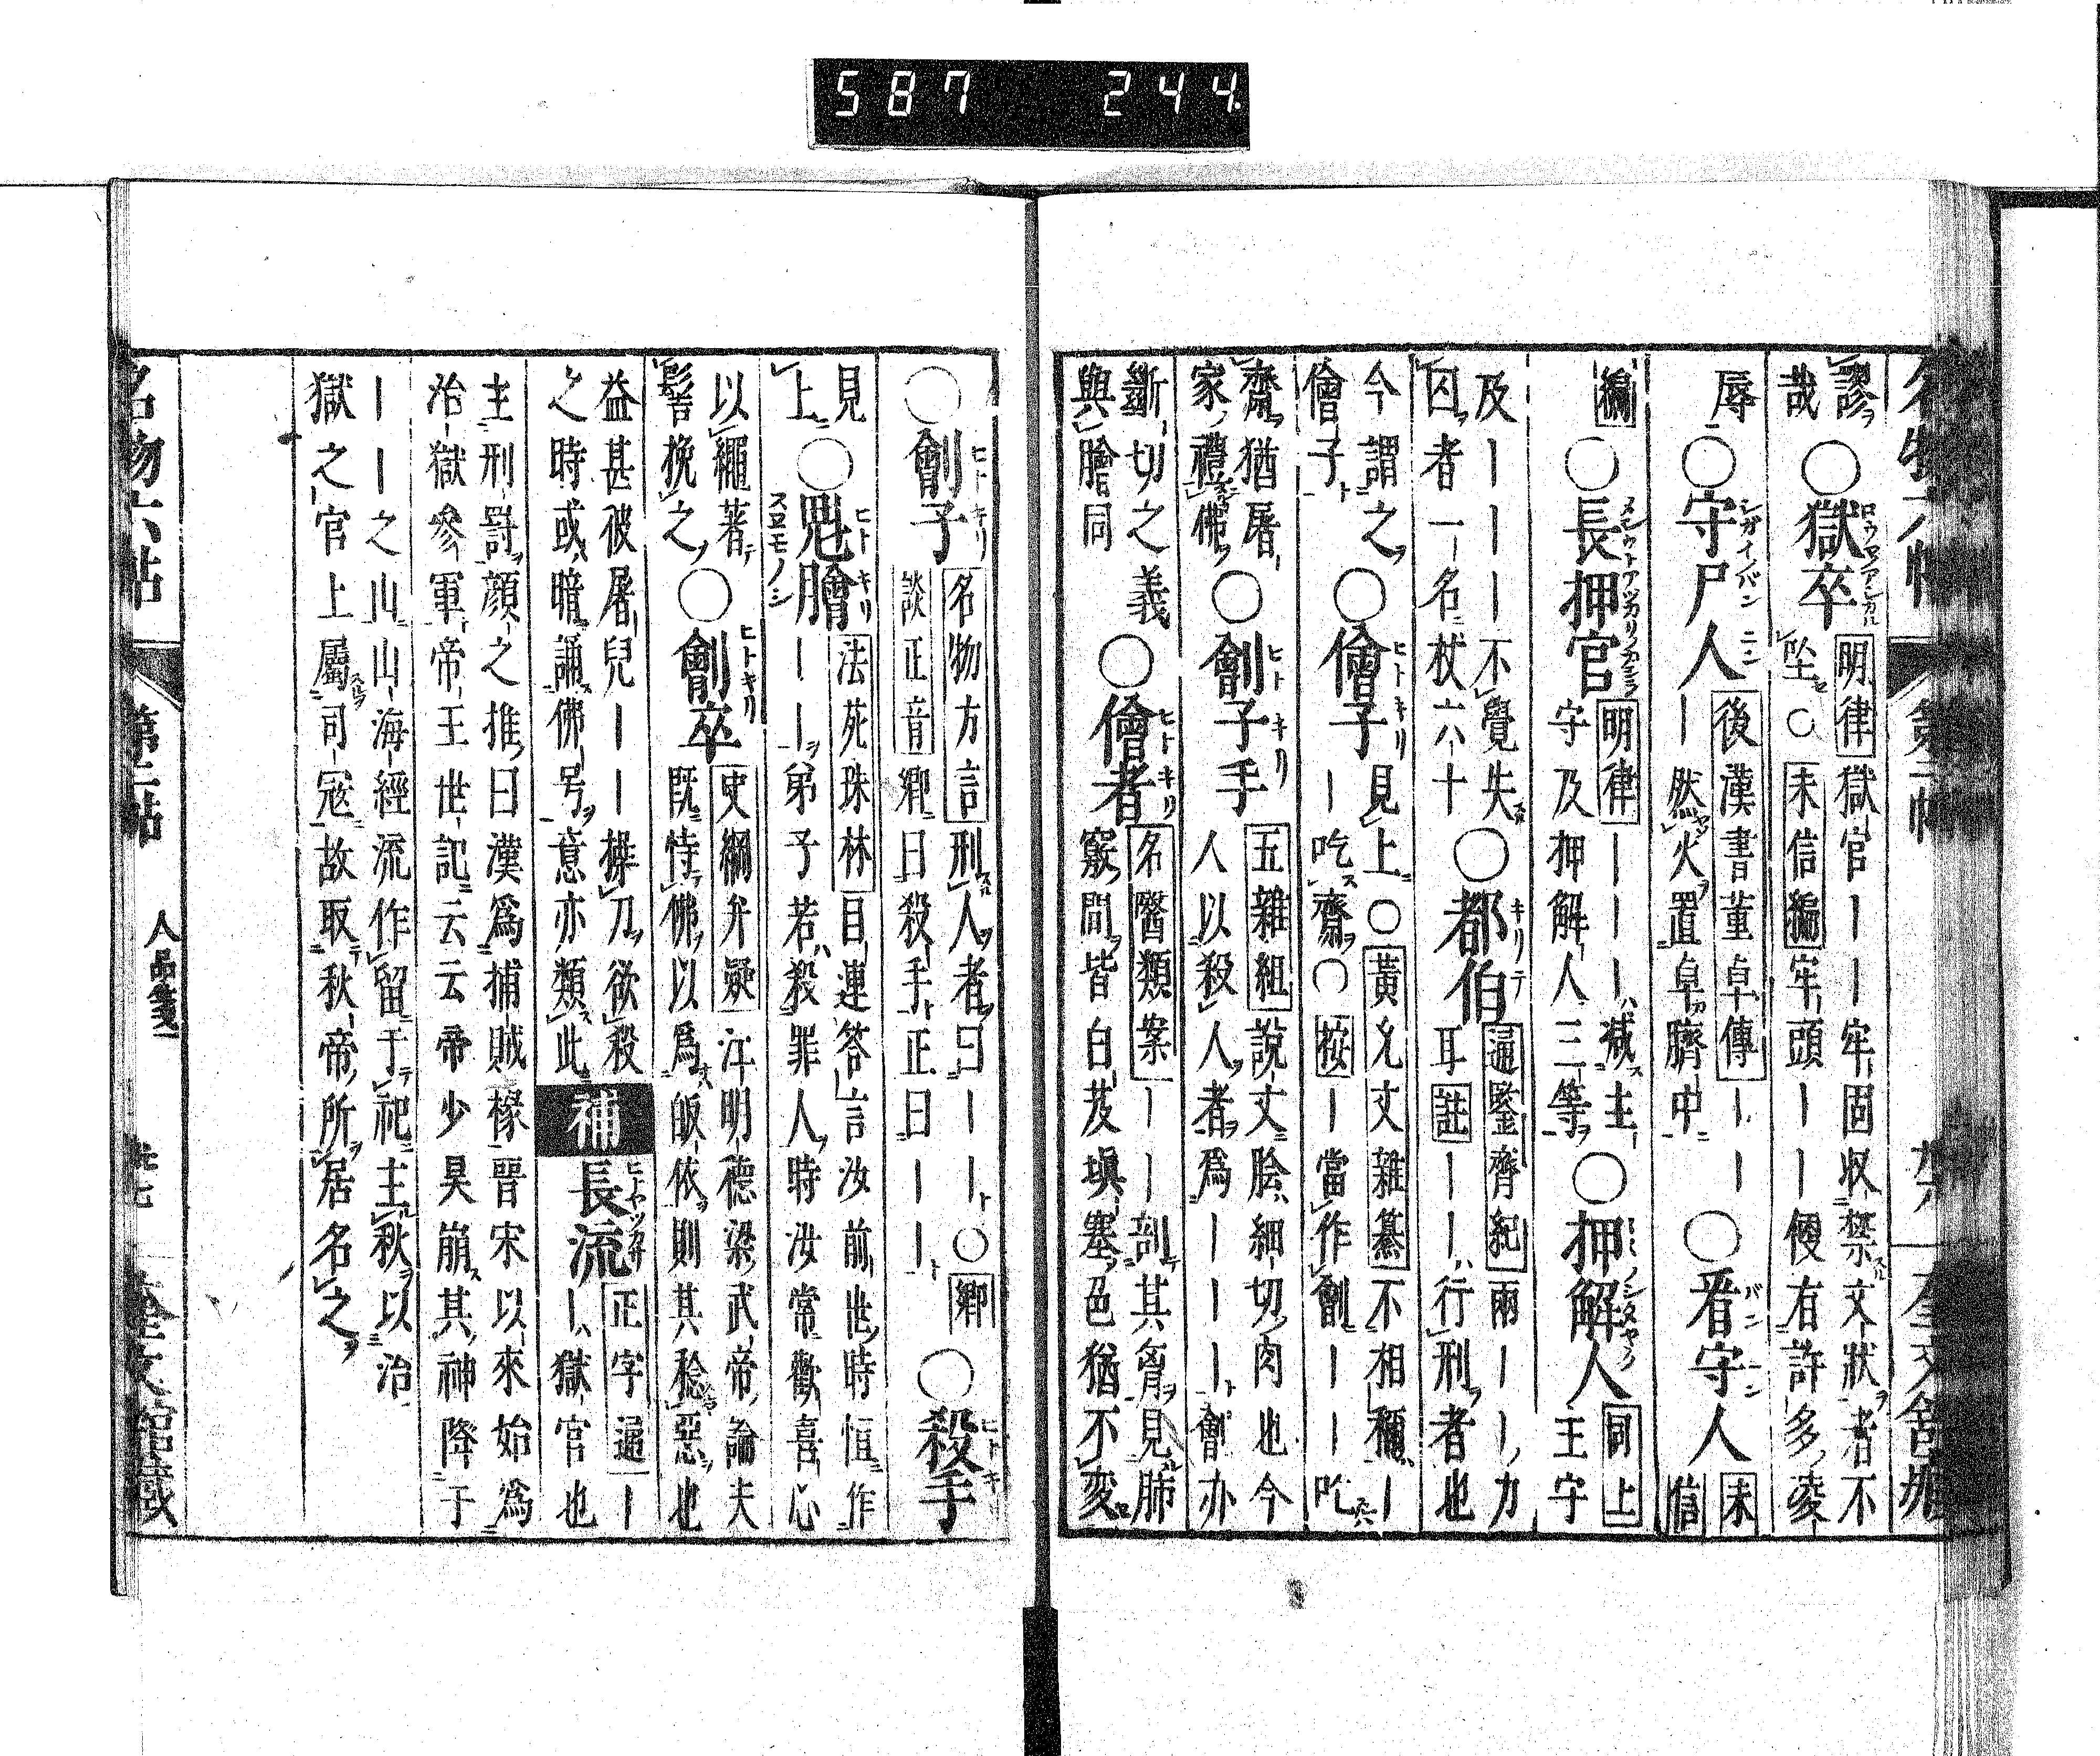 587 244
謬哉○獄卒 明律 獄官｜｜牢固収禁文状者不
坐○未信編 牢頭｜｜｜便有許多凌
辱○守尸人 後漢書董卓傳 ｜｜｜
｜然火置卓臍中○看守人 未信
編○長押官 明律 ｜｜｜減主
守及押解人三等○押解人 同上 主守
及｜｜｜不覺失
囚者一名杖六十○都伯 通鑒齊紀 兩｜｜力
耳 註 ｜｜行刑者也
今謂之儈子○儈子 見上○黄允文雜纂 不相稱｜
｜吃齋○按｜當作劊｜｜吃
齋猶屠家禮佛○劊子手 五雜組 説文膾細切肉也今
人以殺人者爲｜｜｜劊亦
斷切之義與膾同○儈者 名醫類案 ｜｜剖其胷見肺
竅間皆白芨塡塞色猶不変
○劊子 名物方言 刑人者曰｜｜○鄉
談正音 鄉曰殺手正曰｜｜○殺手
見上○魁膾 法苑珠林 目連答言汝前世時恒作
｜｜弟子若殺罪人時汝常歡喜心
以繩著髻挽之○劊卒 史綱弁疑 江明德梁武帝論夫
既恃佛以爲皈依則其稔惡也
益甚彼屠兒｜｜操刀欲殺
之時或暗誦佛号意亦類此 補 長流 正字通 ｜
｜獄官也
主刑罸顔之推曰漢爲捕賊掾晋宋以來始爲
治獄參軍帝王世記云云帝少昊崩其神降于
｜｜之山山海經流作留于祀主秋以治
獄之官上屬司寇故取秋帝所居名之
名物六帖 第二帖 人品箋二 卅七 奎文館藏